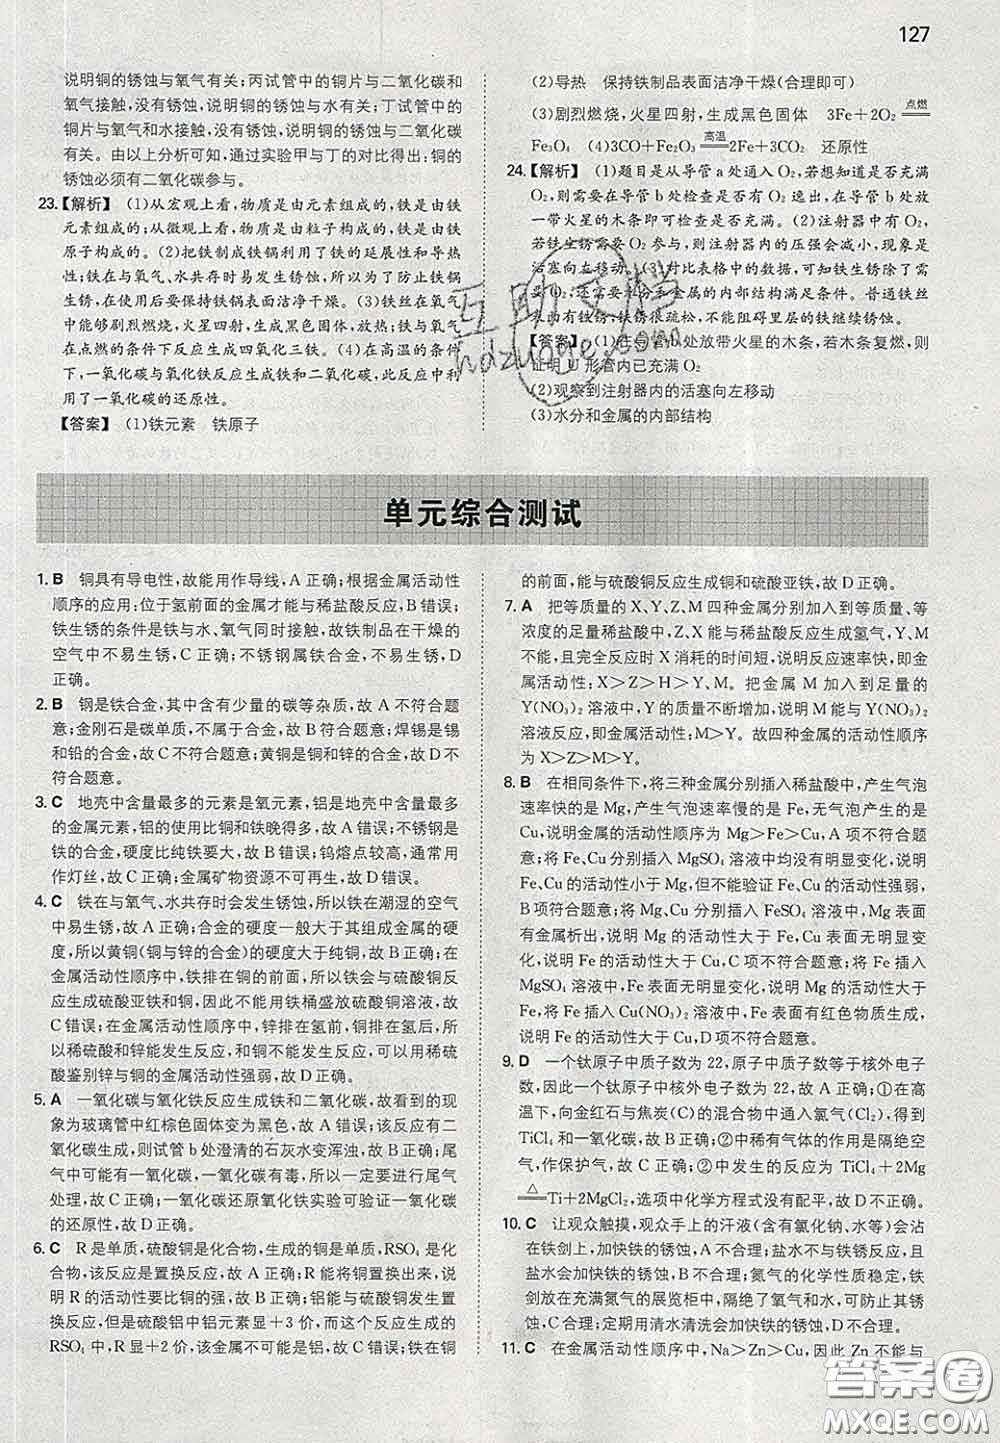 127
说明铜的锈蚀与氧气有关;丙试管中的铜片与二氧化碳和
氧气接触,没有锈蚀,说明铜的锈蚀与水有关;丁试管中的
铜片与氧气和水接触,没有锈蚀,说明铜的锈蚀与二氧化碳
有关。由以上分析可知,通过实验甲与丁的对比得出:铜的
锈蚀必须有二氧化碳参与。
23.【解析】 (1)从宏观上看,物质是由元素组成的,铁是由铁
元素组成的;从微观上看,物质是由粒子构成的,铁是由铁
原子构成的。(2)把铁制成铁锅利用了铁的延展性和导热
性;铁在与氧气、水共存时易发生锈蚀,所以为了防止铁锅
生锈,使用后要保持铁锅表面洁净干燥。(3)铁丝在氧气
中能够剧烈燃烧,火星四射,生成黑色固体,放热;铁与氧气
在点燃的条件下反应生成四氧化三铁。(4)在高温的条件
下,一氧化碳与氧化铁反应生成铁和二氧化碳,此反应中利
用了一氧化碳的还原性。
【答案】 (1)铁元素 铁原子
(2)导热 保持铁制品表面洁净干燥(合理即可)
(3)剧烈燃烧,火星四射,生成黑色固体 3Fe+2O₂ 点燃
Fe₃O₄ (4)3CO+Fe₂O₃ 高温 2Fe+3CO₂ 还原性
24.【解析】 (1)题目是从导管 a 处通入 O₂,若想知道是否充满
O₂,则需要在导管 b 处检查是否有 O₂ 逸出,在导管 b 处放
一带火星的木条即可检查是否充满。(2)注射器中有 O₂,
若铁生锈需要 O₂ 参与,则注射器内的压强会减小,现象是
活塞向左移动。(3)对比表格中的数据,可知铁生锈除了需
要水、O₂,还需要满足金属的内部结构满足条件。普通铁丝
表面原有铁锈,铁锈很疏松,不能阻碍里层的铁继续锈蚀。
【答案】 (1)在导管b处放带火星的木条,若木条复燃,则
证明 U 形管内已充满 O₂
(2)观察到注射器内的活塞向左移动
(3)水分和金属的内部结构
单元综合测试
1. B 铜具有导电性,故能用作导线,A 正确;根据金属活动性
顺序的应用:位于氢前面的金属才能与稀盐酸反应,B 错误;
铁生锈的条件是铁与水、氧气同时接触,故铁制品在干燥的
空气中不易生锈,C 正确;不锈钢属铁合金,不易生锈,D
正确。
2. B 钢是铁合金,其中含有少量的碳等杂质,故 A 不符合题
意;金刚石是碳单质,故 B 符合题意;焊锡是锡
和铅的合金,故 C 不符合题意;黄铜是铜和锌的合金,故 D 不
符合题意。
3. C 地壳中含量最多的元素是氧元素,铝是地壳中含量最多
的金属元素,铝的使用比铜和铁晚得多,故 A 错误;不锈钢是
铁的合金,硬度比纯铁要大,故 B 错误;钨熔点较高,通常用
作灯丝,故 C 正确;金属矿物资源不可再生,故 D 错误。
4. C 铁在与氧气、水共存时会发生锈蚀,所以铁在潮湿的空气
中易生锈,故 A 正确;合金的硬度一般大于其组成金属的硬
度,所以黄铜(铜与锌的合金)的硬度大于纯铜,故 B 正确;在
金属活动性顺序中,铁排在铜的前面,所以铁会与硫酸铜反
应生成硫酸亚铁和铜,因此不能用铁桶盛放硫酸铜溶液,故
C 错误;在金属活动性顺序中,锌排在氢前,铜排在氢后,所
以稀硫酸和锌能发生反应,和铜不能发生反应,可以用稀硫
酸鉴别锌与铜的金属活动性强弱,故 D 正确。
5. A 一氧化碳与氧化铁反应生成铁和二氧化碳,故看到的现
象为玻璃管中红棕色固体变为黑色,故 A 错误;反应有二氧
化碳生成,则试管 b 处澄清的石灰水变浑浊,故 B 正确;尾
气中可能有一氧化碳,一氧化碳有毒,所以一定要进行尾气
处理,故 C 正确;一氧化碳还原氧化铁实验可验证一氧化碳
的还原性,故 D 正确。
6. C R 是单质,硫酸铜是化合物,生成的铜是单质,RSO₄ 是化
合物,该反应是置换反应,故 A 正确;R 能将铜置换出来,说
明 R 的活动性要比铜的强,故 B 正确;铝能与硫酸铜发生置
换反应,但是硫酸铝中铝元素显+3 价,而这个反应生成的
RSO₄ 中,R 显+2 价,该金属不可能是铝,故 C 错误;铁在铜
的前面,能与硫酸铜反应生成铜和硫酸亚铁,故 D 正确。
7. A 把等质量的 X、Y、Z、M 四种金属分别加入到等质量、等
浓度的足量稀盐酸中,Z、X 能与稀盐酸反应生成氢气,Y、M
不能,且完全反应时 X 消耗的时间短,说明反应速率快,即金
属活动性;X>Z>H>Y、M。把金属 M 加入到足量的
Y(NO₃)₂ 溶液中,Y 的质量不断增加,说明 M 能与 Y(NO₃)₂
溶液反应,活动性:M>Y。故四种金属的活动性顺序
为 X>Z>M>Y。
8. B 在相同条件下,将三种金属分别插入稀盐酸中,产生气泡
速率快的是 Mg,产生气泡速率慢的是 Fe,无气泡产生的是
Cu,说明金属的活动性顺序为 Mg>Fe>Cu,A 项不符合题
意;将 Fe、Cu 分别插入 MgSO₄ 溶液中均没有明显变化,说明
Fe、Cu 的活动性小于 Mg,但是不能验证 Fe、Cu 的活动性强弱,
B 项符合题意;将 Mg、Cu 分别插入 FeSO₄ 溶液中,Mg 表面
有金属析出,说明 Mg 的活动性大于 Fe,Cu 表面无明显变
化,说明 Fe 的活动性大于 Cu,C 项不符合题意;将 Fe 插入
MgSO₄ 溶液中,Fe 表面无明显变化,说明 Mg 的活动性大于
Fe,将 Fe 插入 Cu(NO₃)₂ 溶液中,Fe 表面有红色物质生成,
说明 Fe 的活动性大于 Cu,D 项不符合题意。
9. D 一个钛原子中质子数为 22,原子中质子数等于核外电子
数,因此一个钛原子中核外电子数为 22,故 A 正确;①在高
温下,向金红石与焦炭(C)的混合物中通入氯气(Cl₂),得到
TiCl₄ 和一氧化碳,故 B 正确;②中稀有气体的作用是隔绝空
气,作保护气,故 C 正确;②中发生的反应为 TiCl₄+2Mg
△ Ti+2MgCl₂,选项中化学方程式没有配平,故 D 不正确。
10. C 让观众触摸,观众手上的汗液(含有氯化钠、水等)会沾
在铁剑上,加快铁的锈蚀,A 不合理;盐水不与铁锈反应,且
盐水会加快铁的锈蚀,B 不合理;氮气的化学性质稳定,铁
剑放在充满氮气的展览柜中,隔绝了氧气和水,可防止其锈
蚀,C 合理;定期用清水清洗会加快铁的锈蚀,D 不合理。
11. C 在金属活动性顺序中,Na>Zn>Cu,因此 Zn 不能与
互助文档
hdzuoye.com
答案圈
MXQE.COM